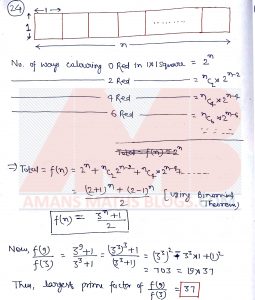 24
1
1
n
No. of ways colouring 0 Red in 1x1 Square = 2^n
2 Red = nC2 × 2^(n-2)
4 Red = nC4 × 2^(n-4)
6 Red = nC6 × 2^(n-6)
Total = f(n) = 2^n
⇒ Total = f(n) = 2^n + nC2 2^(n-2) + nC4 × 2^(n-4) + ...
= ((2+1)^n + (2-1)^n)/2 [Using Binomial Theorem]
f(n) = (3^n + 1)/2
Now, f(9)/f(3) = (3^9+1)/(3^3+1) = ((3^3)^3+1)/(3^3+1) = (3^3)^2 - 3^3×1 + (1)^2
= 703 = 19×37
Thus, largest prime factor of f(9)/f(3) = 37
AMANS MATHS BLOGS